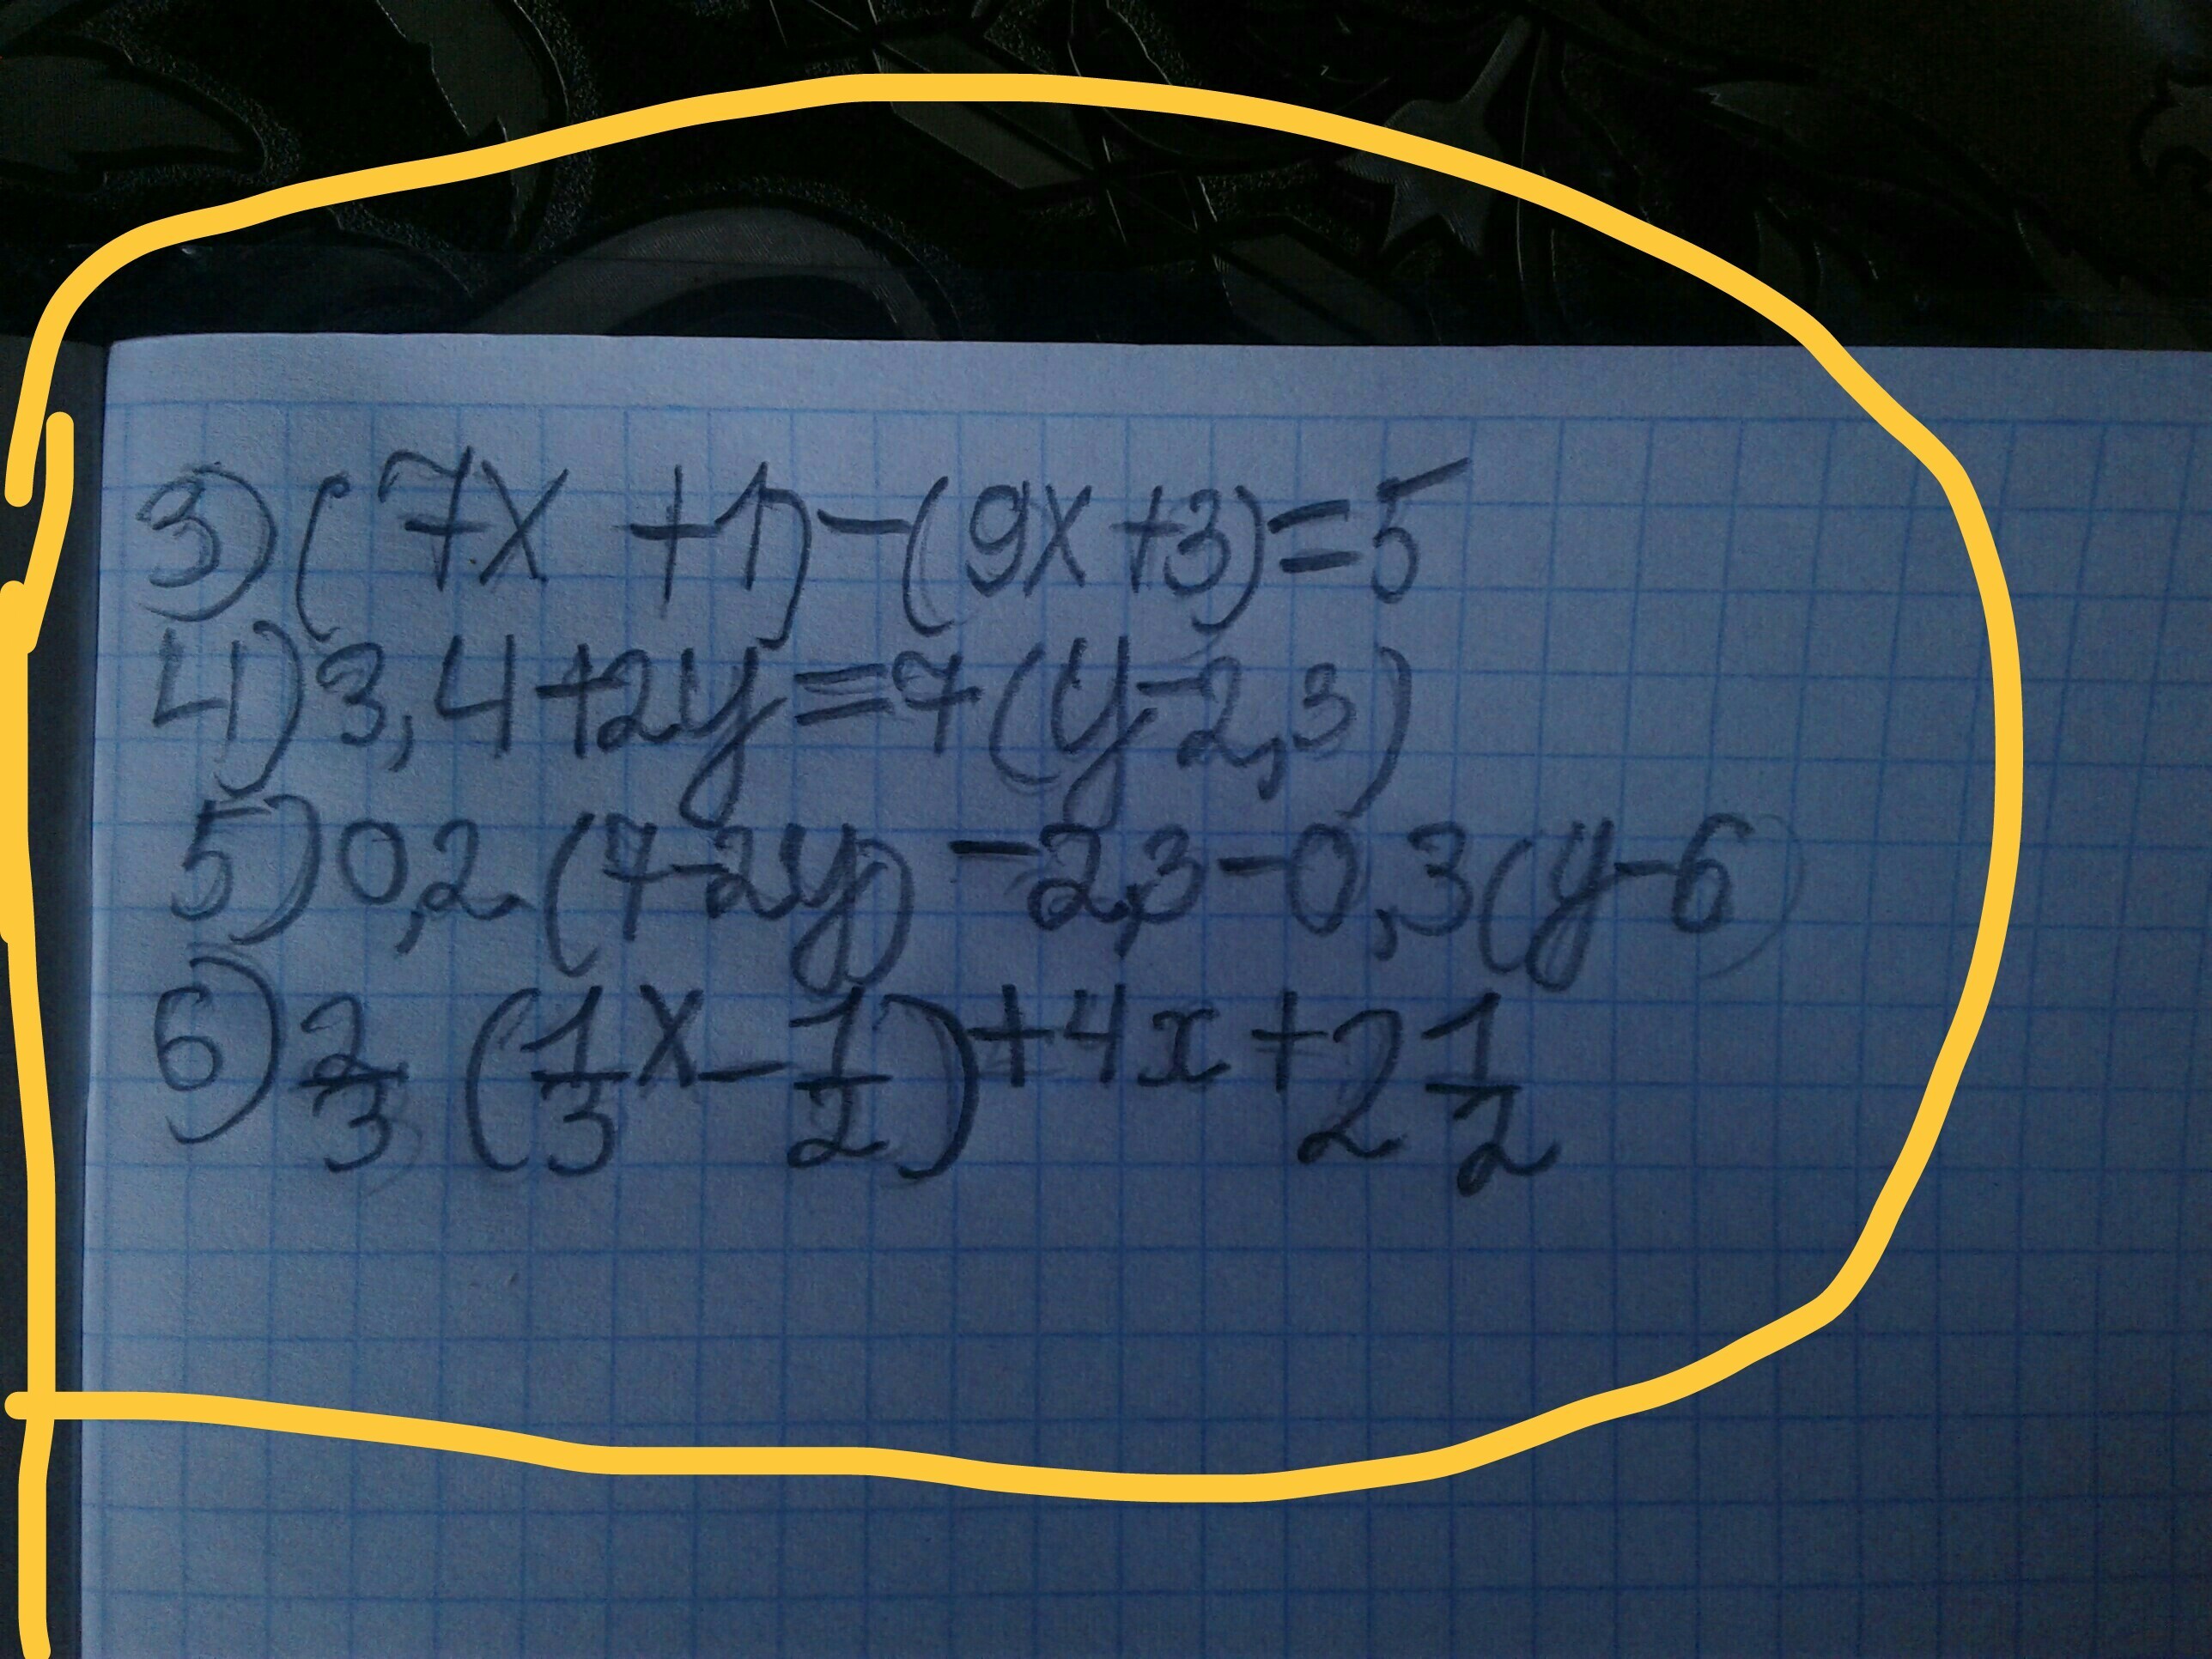 3) (7x + 1) - (9x + 3) = 5
4) 3,4 + 2y = 7(y - 2,3)
5) 0,2·(7 - 2y) - 2,3 - 0,3(y - 6)
6) 2/3 (1/3 x - 1/2) + 4x + 2 1/2